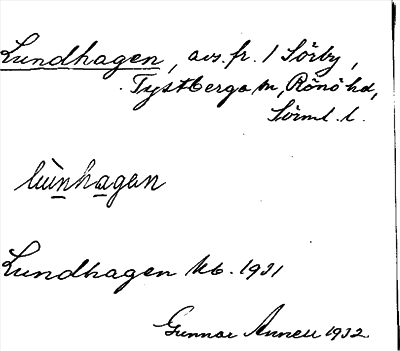 Lundhagen, avs. fr. 1 Sörby,
Tystberga sn, Rönö hd,
Sörml. l.
lùnhagen
Lundhagen kb. 1931
Gunnar Annell 1932